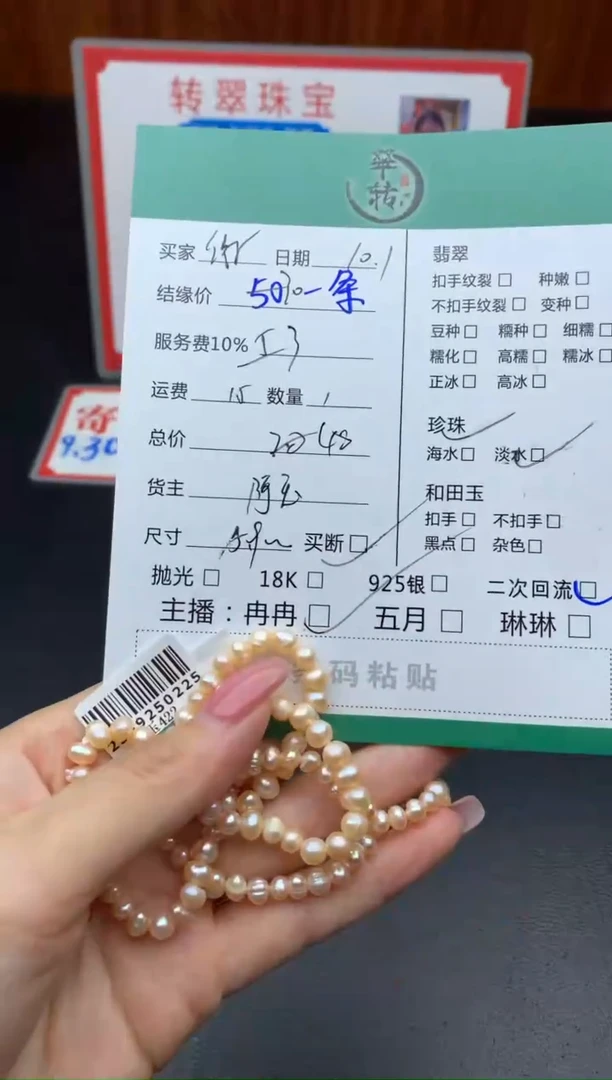 转翠珠宝
翠转
买家 日期 10.1
结缘价 一条
服务费10%
运费 15 数量 1
总价
货主
尺寸 买断□
翡翠
扣手纹裂□ 种嫩□
不扣手纹裂□ 变种□
豆种□ 糯种□ 细糯□
糯化□ 高糯□ 糯冰□
正冰□ 高冰□
珍珠
海水□ 淡水□
和田玉
扣手□ 不扣手□
黑点□ 杂色□
抛光□ 18K□ 925银□ 二次回流□
主播：冉冉□ 五月□ 琳琳□
码粘贴
9250225
寄
9.30